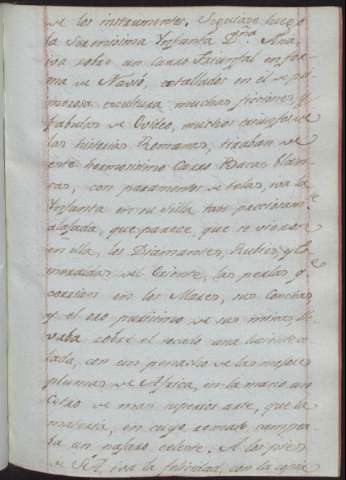 de los instrumentos. Seguiase luego
la Serenisima Ynfanta Dña. Ana,
iva sobre un Carro Triunfal en for
ma de Navio, entallados en él de pri
morosa escultura muchas ficciones, y
fabulas de Ovidio, muchos triunfos de
las historias Romanas, tiraban de
este hermosissimo Carro Bacas blan
cas, con paramentos de telas, iva la
Ynfanta en su silla tan preciosamte
alajada, que parece que se vieron
en ella, los Diamantes, Rubies, y Es
meraldas del Oriente, las perlas qe
en los Mares, sus Conchas
y el oro purisimo de sus minas, lle
vaba sobre el tocado una
lada, con un penacho de las mejores
plumas de Africa, en la mano un
Cetro de mas superior arte, que la
materia, en cuyo remate campea
ba un pajaro celeste. A los pies
de S.A. iva la felicidad, con la copia